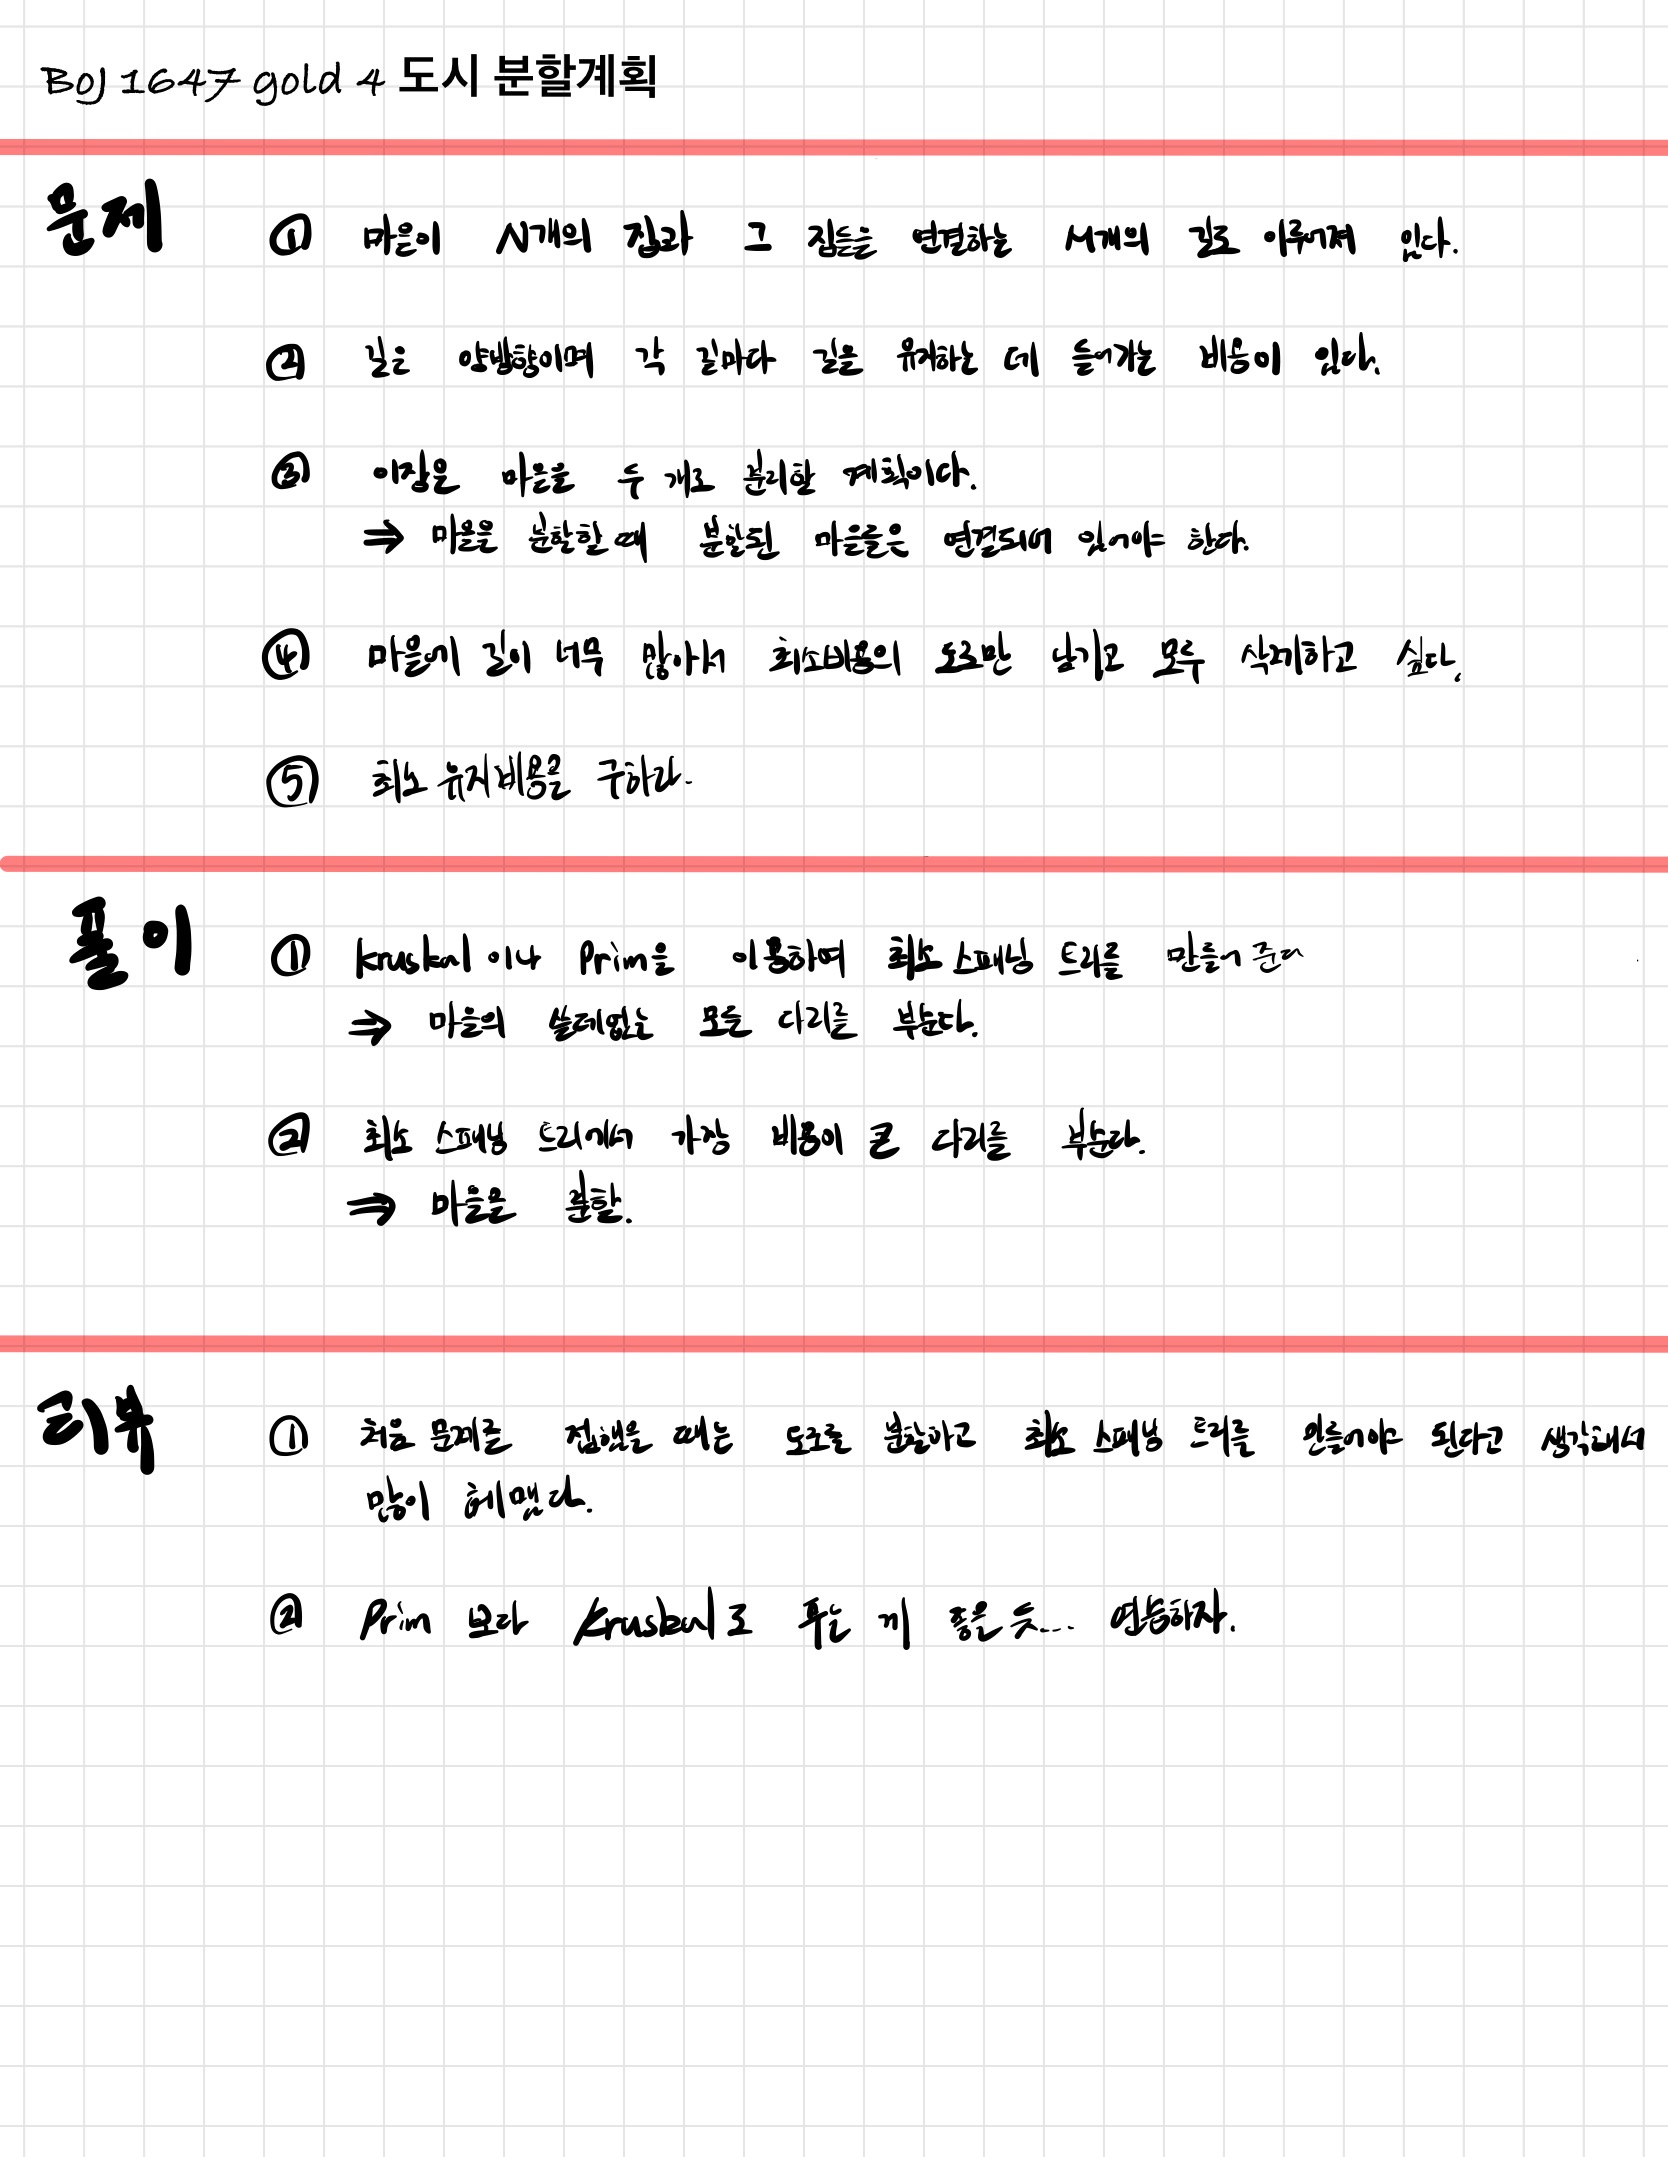 BOJ 1647 gold 4 도시 분할계획
문제
① 마을이 N개의 집과 그 집들을 연결하는 M개의 길로 이루어져 있다.
② 길은 양방향이며 각 길마다 길을 유지하는 데 들어가는 비용이 있다.
③ 이장은 마을을 두 개로 분리할 계획이다.
⇒ 마을을 분할할 때 분할된 마을들은 연결되어 있어야 한다.
④ 마을에 길이 너무 많아서 최소비용의 도로만 남기고 모두 삭제하고 싶다.
⑤ 최소 유지비용을 구하라.
풀이
① Kruskal 이나 Prim을 이용하여 최소 스패닝 트리를 만들어 준다
⇒ 마을의 쓸데없는 모든 다리를 부순다.
② 최소 스패닝 트리에서 가장 비용이 큰 다리를 부순다.
⇒ 마을을 분할.
리뷰
① 처음 문제를 접했을 때는 도로를 분할하고 최소 스패닝 트리를 만들어야 된다고 생각해서
많이 헤맸다.
② Prim 보다 Kruskal로 푸는 게 좋을 듯... 연습하자.